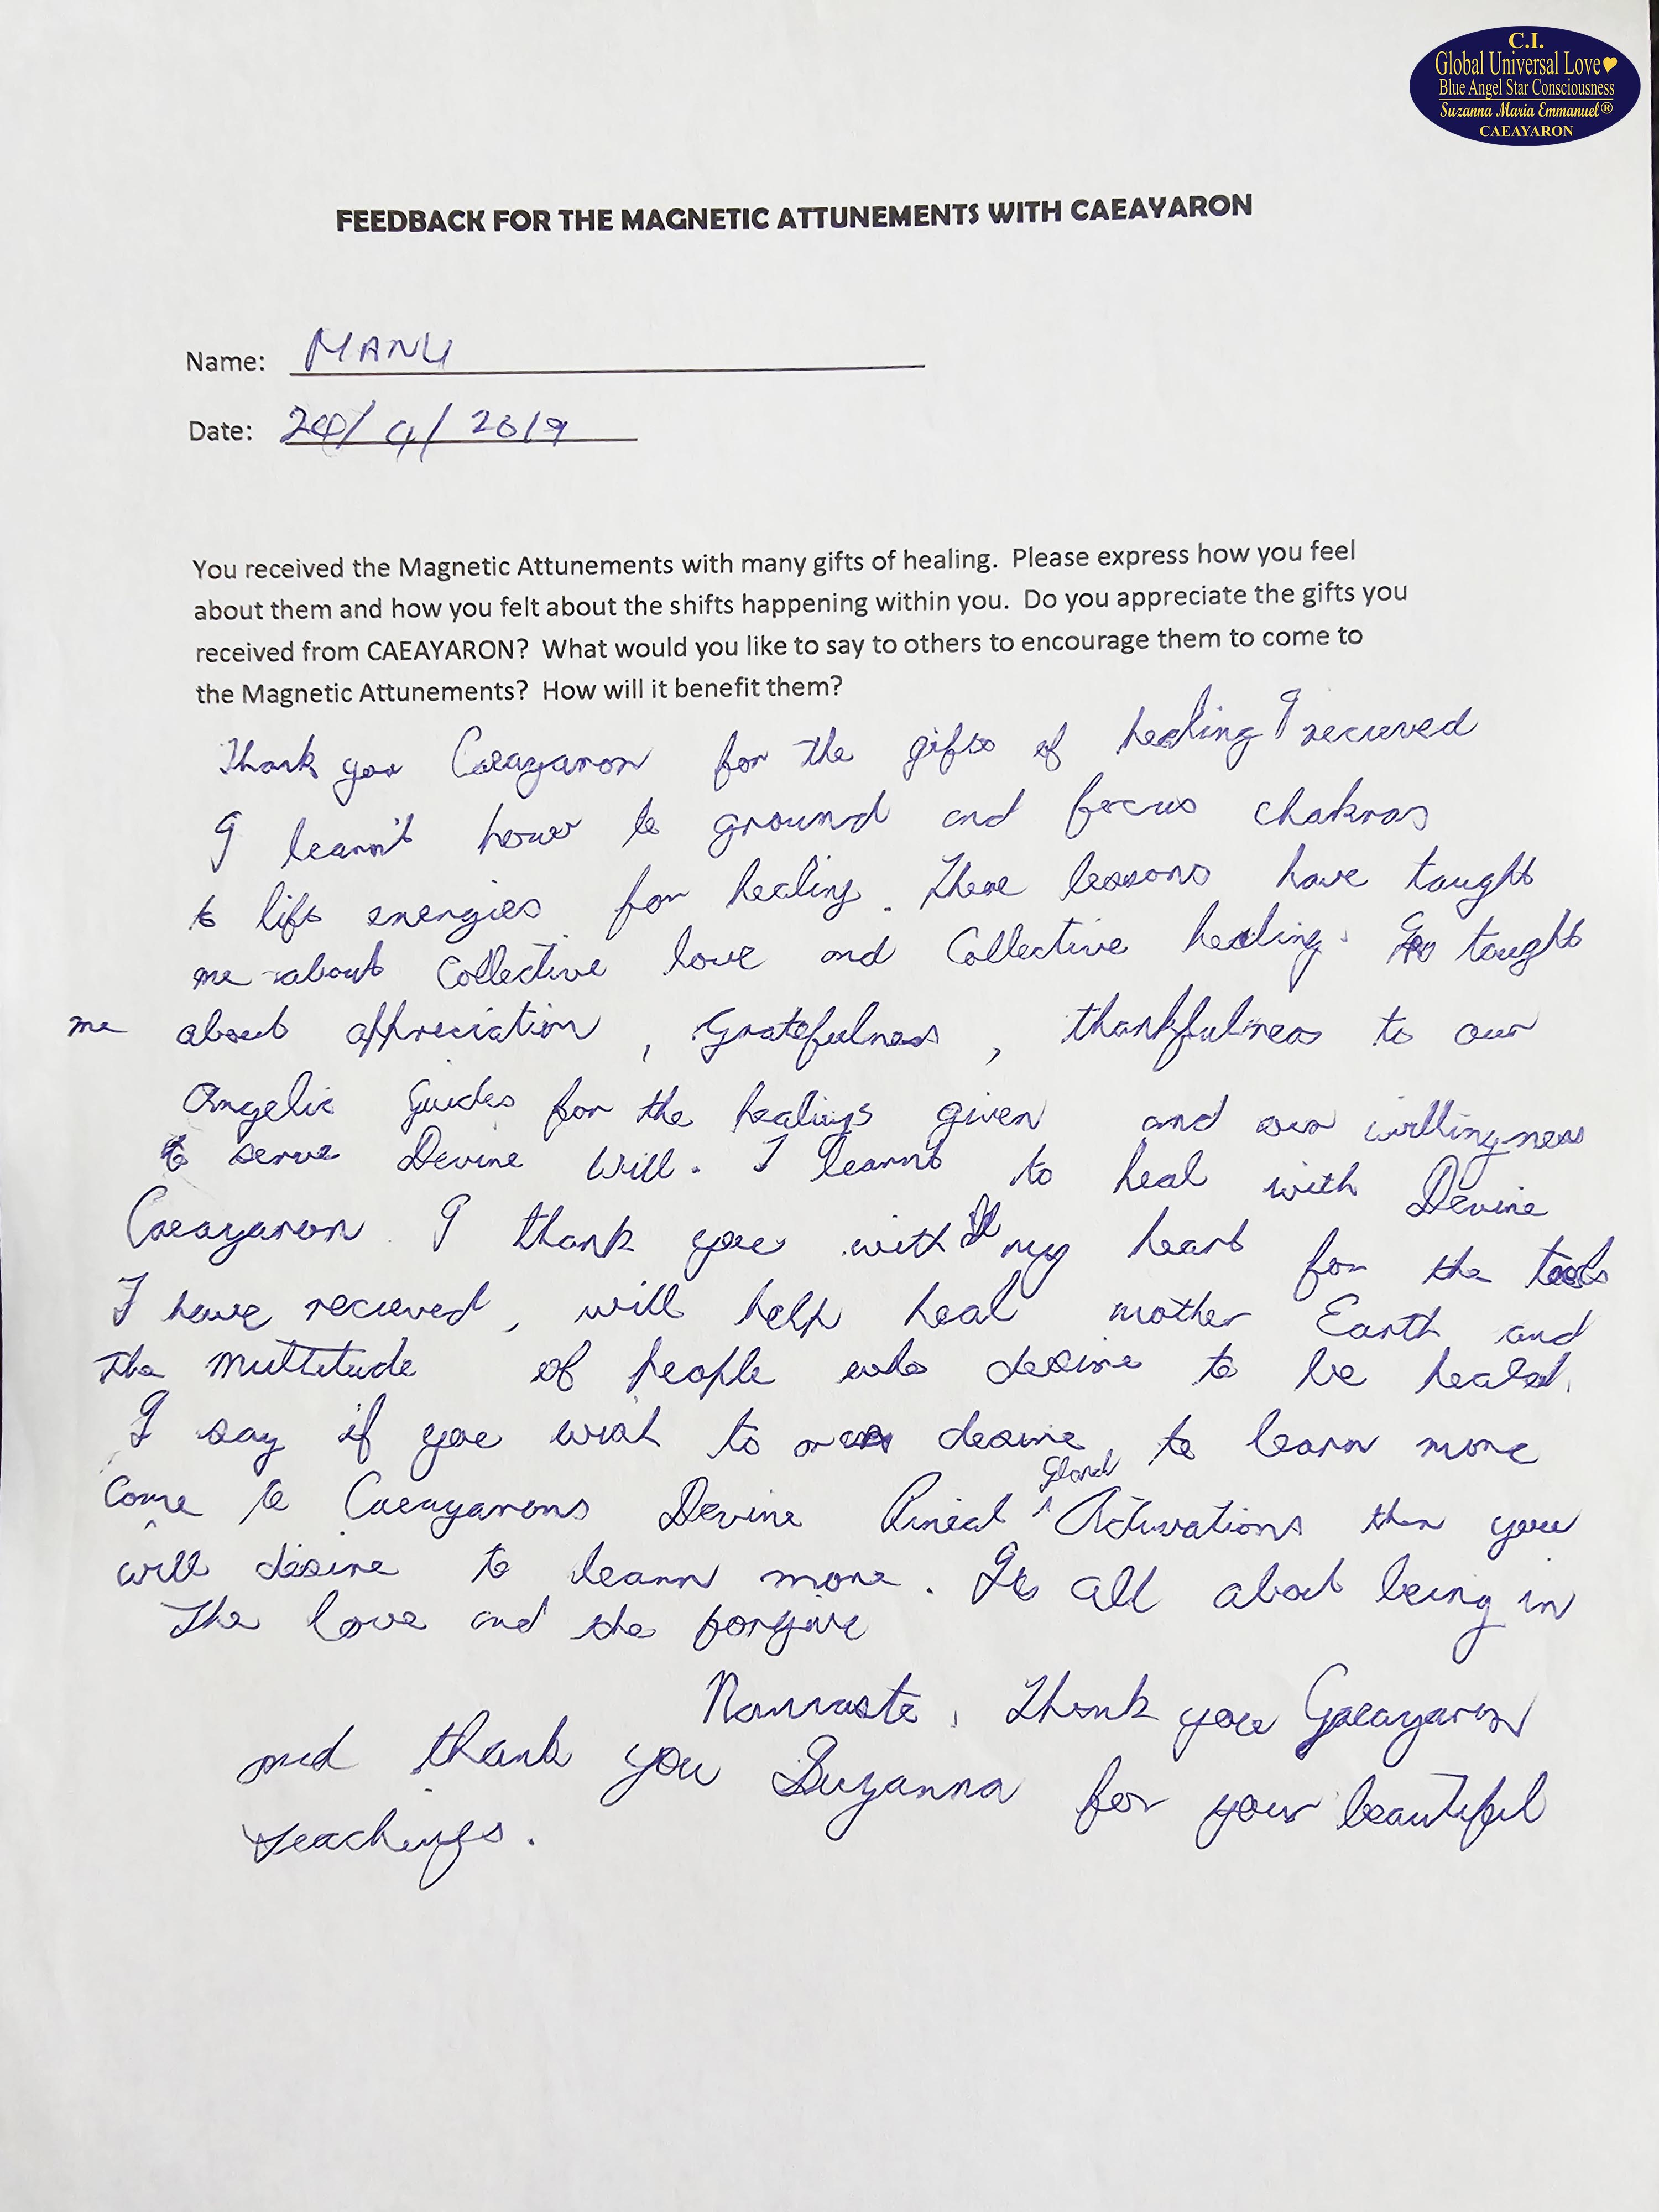 C.I.
Global Universal Love
Blue Angel Star Consciousness
Suzanna Maria Emmanuel®
CAEAYARON
FEEDBACK FOR THE MAGNETIC ATTUNEMENTS WITH CAEAYARON
Name: MANU
Date: 20/4/2019
You received the Magnetic Attunements with many gifts of healing. Please express how you feel
about them and how you felt about the shifts happening within you. Do you appreciate the gifts you
received from CAEAYARON? What would you like to say to others to encourage them to come to
the Magnetic Attunements? How will it benefit them?
Thank you Caeayaron for the gifts of healing I recieved
I learnt how to ground and focus chakras
to lift energies for healing. These lessons have taught
me about Collective love and Collective healing. taught
me about appreciation, Gratefulness, thankfulness to our
Angelic Guides for the healings given and our willingness
to serve Devine Will. I learnt to heal with Devine
Caeayaron. I thank you with my heart for the tools
I have recieved, will help heal mother Earth and
the multitude of people who desire to be healed.
I say if you wish to or desire, to learn more
Come to Caeayarons Devine Pineal Gland Activations then you
will desire to learn more. Its all about being in
the love and the forgive
Namaste, Thank you Caeayaron
and thank you Suzanna for your beautiful
teachings.